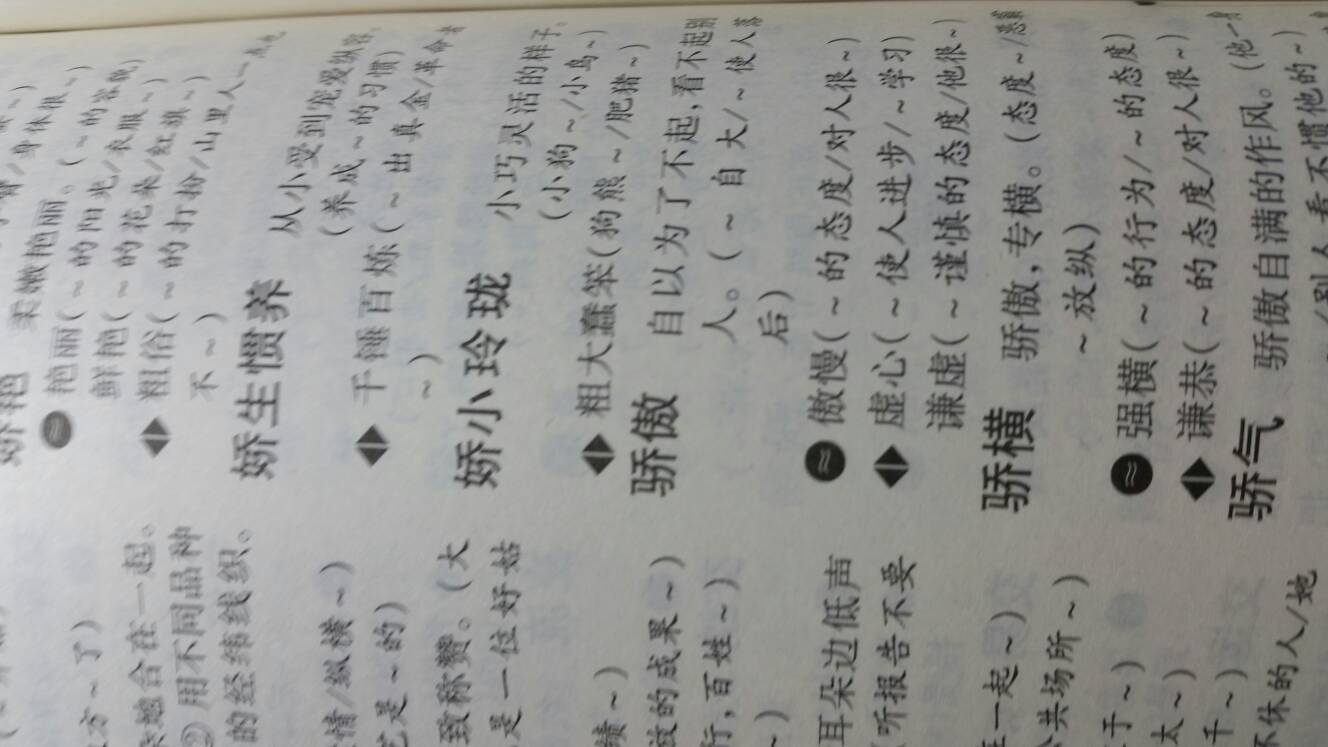 方~了)
合在一起。
② 用不同品种
的经纬线织。
情/纵横~)
是~的)
致称赞。(大
是一位好姑
绩~)
的成果~)
行,百姓~)
~)
耳朵边低声
所报告不要
一起~)
共场所~)
于~)
太~)
千~)
不休的人/她
娇艳 柔嫩艳丽。(~的容貌)
≈ 艳丽(~的阳光/衣服~)
鲜艳(~的花朵/红旗~)
◆ 粗俗(~的打扮/山里人一点也
不~)
娇生惯养 从小受到宠爱纵容。
(养成~的习惯)
◆ 千锤百炼(~出真金/革命者
~)
娇小玲珑 小巧灵活的样子。
(小狗~/小鸟~)
◆ 粗大蠢笨(狗熊~/肥猪~)
骄傲 自以为了不起,看不起别
人。(~自大/~使人落
后)
≈ 傲慢(~的态度/对人很~)
◆ 虚心(~使人进步/~学习)
谦虚(~谨慎的态度/他很~)
骄横 骄傲,专横。(态度~/
~放纵)
≈ 强横(~的行为/~的态度)
◆ 谦恭(~的态度/对人很~)
骄气 骄傲自满的作风。(他一身
别人看不惯他的~)